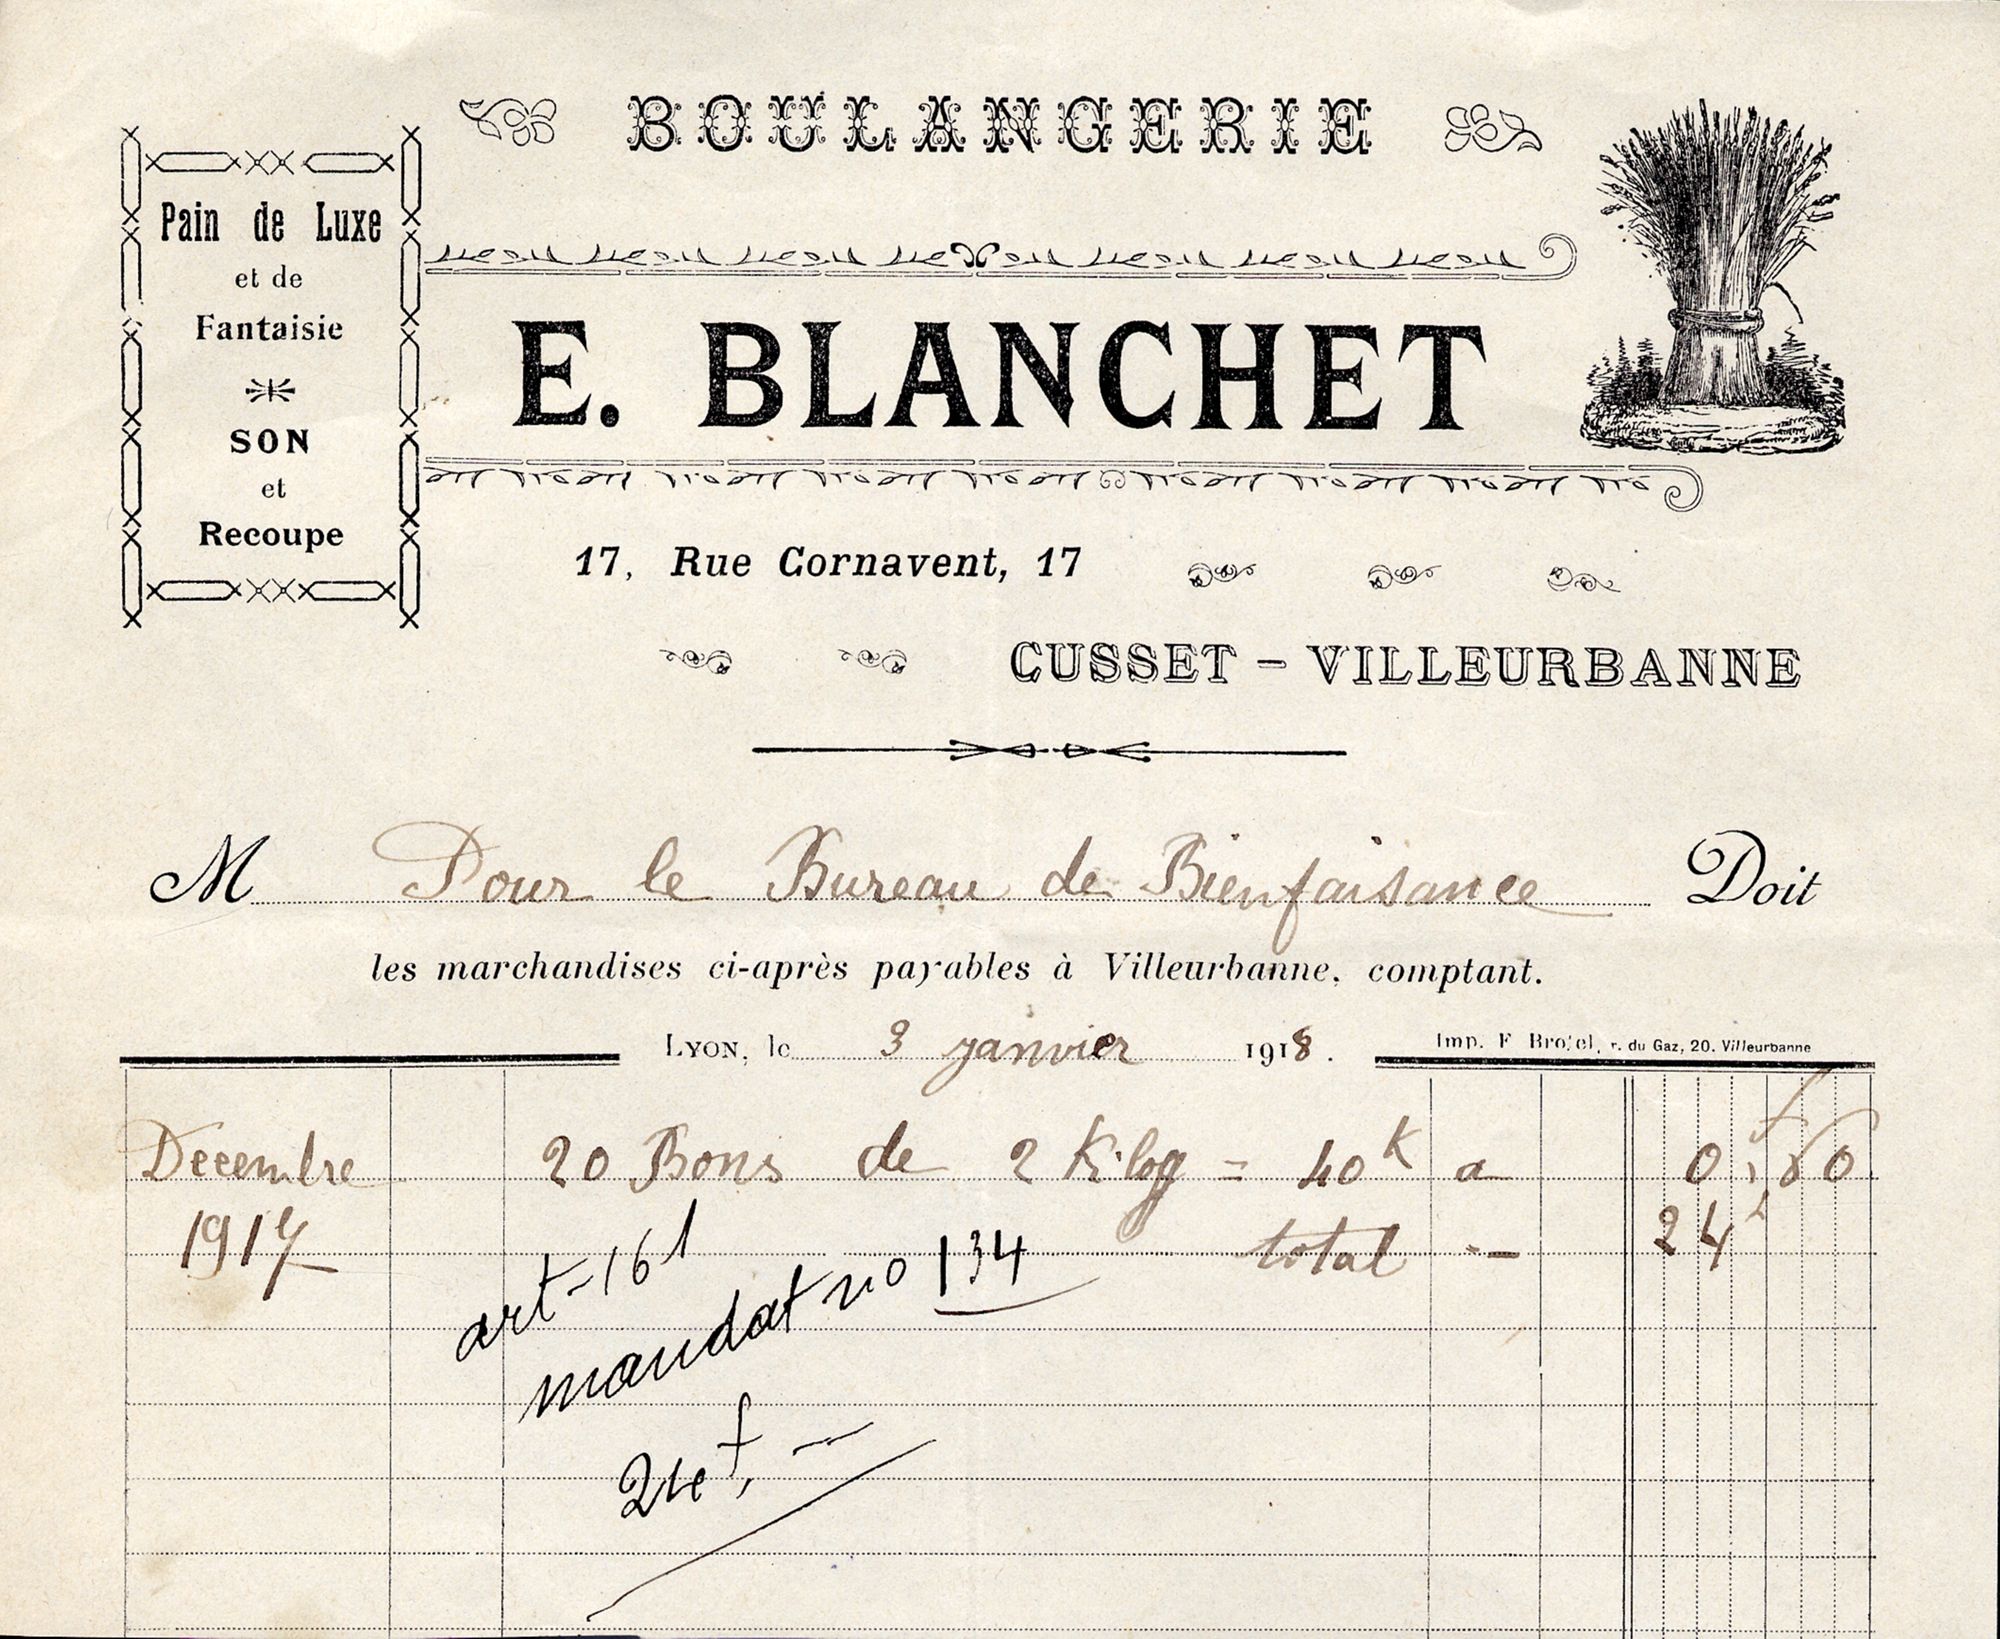 BOULANGERIE
Pain de Luxe
et de
Fantaisie
SON
et
Recoupe
E. BLANCHET
17, Rue Cornavent, 17
CUSSET - VILLEURBANNE
M Pour le Bureau de Bienfaisance Doit
les marchandises ci-après payables à Villeurbanne, comptant.
LYON, le 3 janvier 1918.
Imp. F r. du Gaz, 20. Villeurbanne
Decembre 20 Bons de 2 Kilog = 40 K a 0,f60
1917 total -- 24 f
art-161
mandat no 134
24f,—